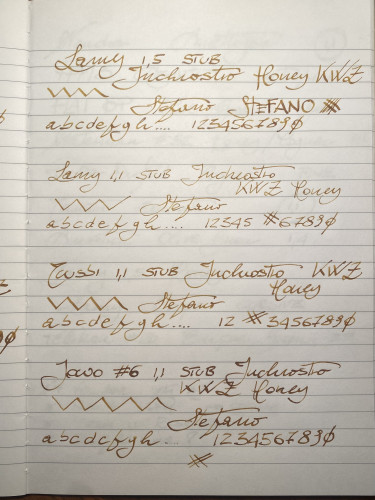 Lamy 1,5 STUB
Inchiostro Honey KWZ
Stefano STEFANO
abcdefgh.... 1234567890
Lamy 1,1 STUB Inchiostro
KWZ Honey
Stefano
abcdefgh.... 12345 67890
1,1 STUB Inchiostro KWZ
Honey
Stefano
abcdefgh.... 12 34567890
Jowo #6 1,1 STUB Inchiostro
KWZ Honey
Stefano
abcdefgh... 1234567890